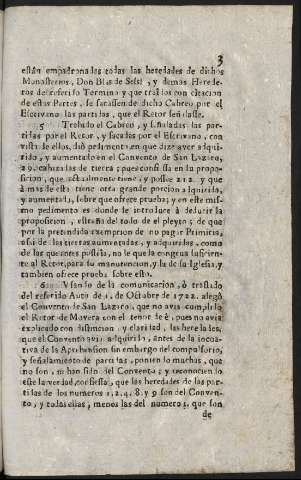 3
están empadronadas todas las heredades de dichos
Monasterios, Don Blas de Sessè, y demàs Herede-
ros del referido Termino y que traìdos con citacion
de estas Partes, se sacassen de dicho Cabreo por el
Escrivano las partidas, que el Retor señalasse.
5 Trahido el Cabreo, y señaladas las par-
tidas por el Retor, y sacadas por el Escrivano, con
vista de ellos, diò pedimento en que dize aver adqui-
rido, y aumentado en el Convento de San Lazaro,
cahizadas de tierra; pues confiessa en su propo-
sicion, que actualmente tiene, y posseè 212. y que
à mas de esta tiene otra grande porcion adquirida,
y aumentada, sobre que ofrece prueba; y en este mis-
mo pedimento es donde se introduce à deducir la
proposicion, estraña de todo el pleyto; de que
por la pretendida exempcion de no pagar Primicia,
assi de las tierras aumentadas, y adquiridas, como
de las que antes posseìa, no le queda congrua suficiente
al Retor, para su manutencion, y la de su Iglesia, y
tambien ofrece prueba sobre esto.
6 Usando de la comunicacion, ò traslado
del referido Auto de 1. de Octubre de 1722. alegò
el Convento de San Lazaro, que no avia cumplido
el Retor de Movera con el tenor de è, pues no avia
explicado con distincion, y claridad, las heredades,
que el Convento avia adquirido, antes de la incoa-
tiva de la Aprehension sin embargo del compulsorio,
y señalamiento de partidas, ponien lo muchas, que
no son, ni han sido del Convento; y reconocien lo
este la verdad, confiessa, que las heredades de las par-
tidas de los numeros 1. 2. 4. 8. y 9. son del Conven-
to, y todas ellas, menos las del numero 1. que son
de